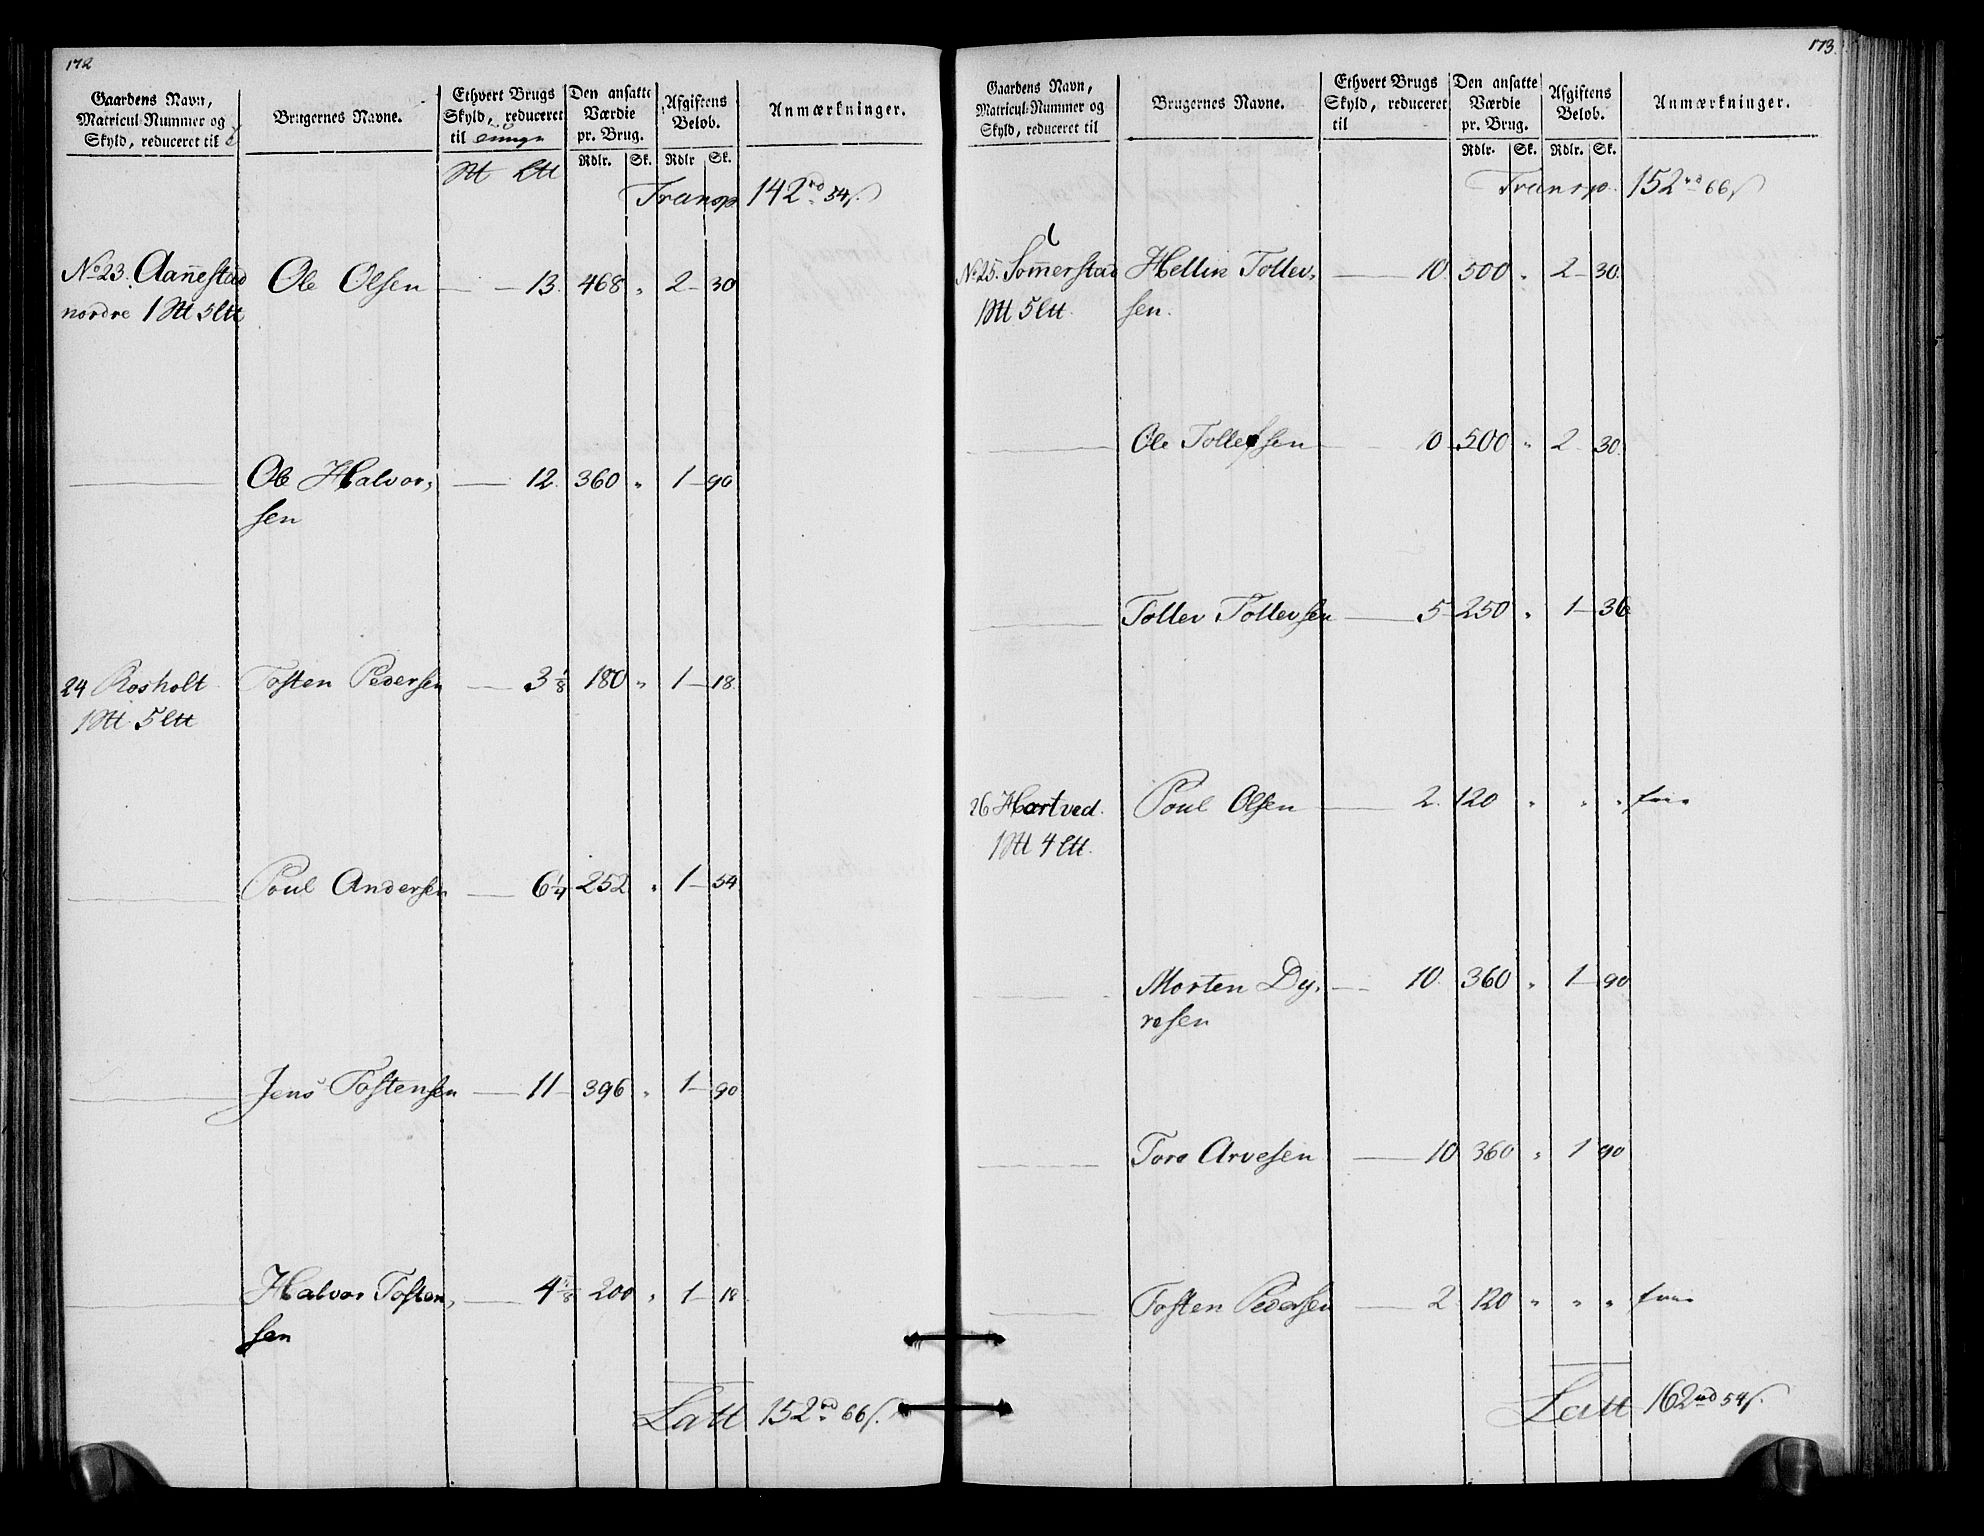 172
Gaardens Navn,
Matricul-Nummer og
Skyld, reduceret til
Brugernes Navne.
Ethvert Brugs
Skyld, reduceret
til
Den ansatte
Værdie
pr. Brug.
Rdlr. Sk.
Afgiftens
Beløb.
Rdlr Sk.
Anmærkninger.
Transp. 142 rd 54 s.
No 23. Aan̄estad Ole Olsen 13. 468 " 2 - 30
nordre 1 5
Ole Halvor- 12. 360 " 1 - 90
sen
24 Rosholt Tosten Pedersen 3 1/8 180 " 1 - 18.
1 5
Poul Andersen 6 1/4 252 " 1 - 54
Jens Tostensen 11 396 " 1 - 90
Halvor Tosten- 4 200 " 1 - 18
sen
Latt 152 rd 66 s.
173.
Gaardens Navn,
Matricul-Nummer og
Skyld, reduceret til
Brugernes Navne.
Ethvert Brugs
Skyld, reduceret
til
Den ansatte
Værdie
pr. Brug.
Rdlr. Sk.
Afgiftens
Beløb.
Rdlr. Sk.
Anmærkninger.
Transp. 152 rd 66 s
No 25. Som̄erstad Hellin Tollev- 10. 500 " 2 - 30.
1 5 sen.
Ole Tollefsen 10 500 " 2 30.
Tollev Tollevsen 5 250 " 1 - 36
26 Hortved. Poul Olsen 2. 120 " " "
1 4
Morten Dy- 10. 360 " 1 - 90
resen
Tore Arvesen 10 360 " 1 90
Tosten Pedersen 2 120 " " "
Latt 162 rd 54 s.